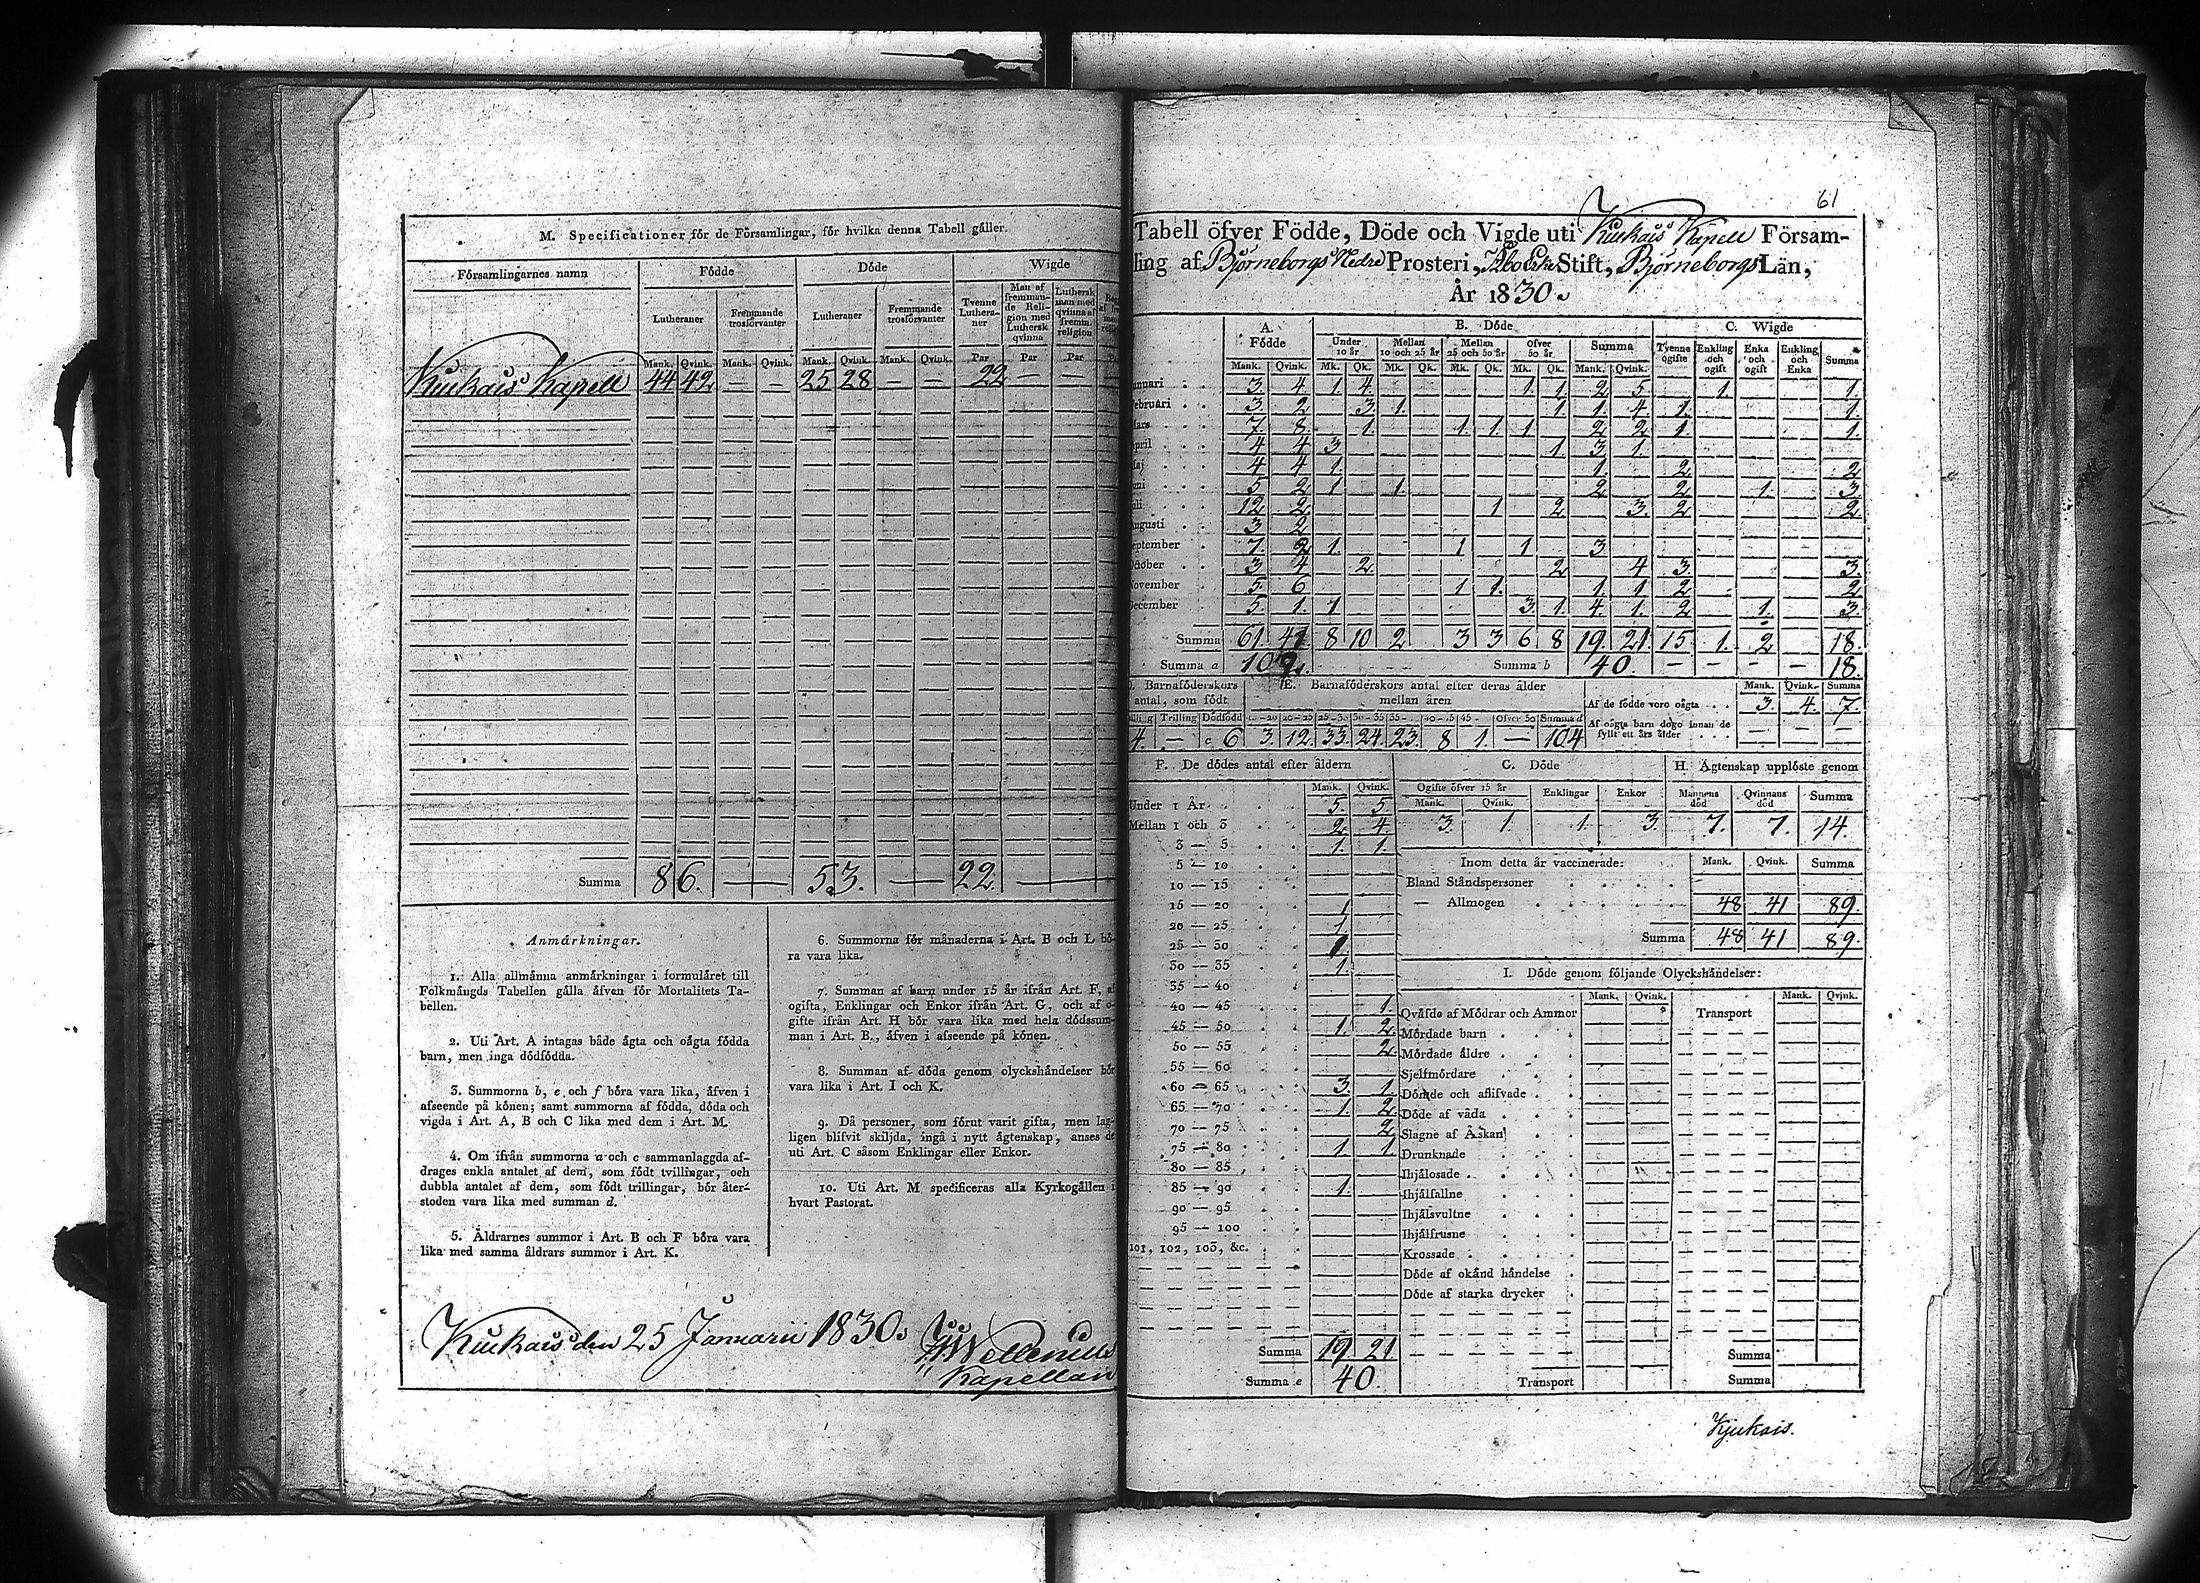 M. Specificationer för de Församlingar, för hvilka denna Tabell gäller.
Församlingarnes namn Födde Döde Wigde
Lutheraner Fremmande trosförvanter Lutheraner Fremmande trosförvanter Tvenne Lutheraner Man af fremmande Religion med Luthersk qvinna Luthersk man med qvinna af fremm. religion
Mank. Qvink. Mank. Qvink. Mank. Qvink. Mank. Qvink. Par Par Par
Kiukais Kapell 44 42 — — 25 28 — — 22 — —
Summa 86. — 53. — 22 —
Anmärkningar.
1. Alla allmänna anmärkningar i formuläret till
Folkmängds Tabellen gälla äfven för Mortalitets Ta-
bellen.
2. Uti Art. A intagas både ägta och oägta födda
barn, men inga dödfödda.
3. Summorna b, e och f böra vara lika, äfven i
afseende på könen; samt summorna af födda, döda och
vigda i Art. A, B och C lika med dem i Art. M.
4. Om ifrån summorna a och c sammanlaggda af-
drages enkla antalet af dem, som födt tvillingar, och
dubbla antalet af dem, som födt trillingar, bör åter-
stoden vara lika med summan d.
5. Åldrarnes summor i Art. B och F böra vara
lika med samma åldrars summor i Art. K.
6. Summorna för månaderna i Art. B och L bö-
ra vara lika.
7. Summan af barn under 15 år ifrån Art. F, af
ogifta, Enklingar och Enkor ifrån Art. G, och af o-
gifte ifrån Art. H bör vara lika med hela dödssum-
man i Art. B., äfven i afseende på könen.
8. Summan af döda genom olyckshändelser bör
vara lika i Art. I och K.
9. Då personer, som förut varit gifta, men lag-
ligen blifvit skiljda, ingå i nytt ägtenskap, anses de
uti Art. C såsom Enklingar eller Enkor.
10. Uti Art. M specificeras alla Kyrkogällen i
hvart Pastorat.
Kiukais den 25 Januarii 1830.
Wellenius
Kapellan
61
Tabell öfver Födde, Döde och Vigde uti Kiukais Kapell Försam-
ling af Björneborgs Nedre Prosteri, Åbo Stift, Björneborgs Län,
År 1830.
A. Födde B. Döde C. Wigde
Under 10 år Mellan 10 och 25 år Mellan 25 och 50 år Öfver 50 år Summa Tvenne ogifte Enkling och ogift Enka och ogift Enkling och Enka Summa
Mank. Qvink. Mk. Qk. Mk. Qk. Mk. Qk. Mk. Qk. Mank. Qvink.
Januari 3 4 1 4 1 1 2 5 1 1
Februari 3 2 3 1 1 1 4 1 1
Mars 7 8 1 1 1 1 2 2 1 1
April 4 4 3 1 3 1
Maj 4 4 1 1 2 2
Juni 5 2 1 1 2 2 1 3
Juli 12 2 1 2 3 2 2
Augusti 3 2
September 7 2 1 1 1 3
October 3 4 2 2 4 3 3
November 5 6 1 1 1 1 2 2
December 5 1 1 3 1 4 1 2 1 3
Summa 61 41 8 10 2 3 3 6 8 19 21 15 1 2 — 18
Summa a 102. Summa b 40. — — — 18.
D. Barnaföderskors antal, som födt E. Barnaföderskors antal efter deras ålder mellan åren Mank. Qvink. Summa
Af de födde voro oägta 3. 4. 7.
Af oägta barn dogo innan de fyllt ett års ålder — — —
Trilling Dödfödd 20-25 Öfver 50 Summa d
4. — c 6 3. 12. 33. 24. 23. 8 1. — 104
F. De dödes antal efter åldern G. Döde H. Ägtenskap upplöste genom
Mank. Qvink. Ogifte öfver 15 år Mank. Qvink. Enklingar Enkor Mannens död Qvinnans död Summa
3. 1. 1. 3. 7. 7. 14.
Under 1 År 5 5
Mellan 1 och 3 2 4
3 — 5 1 1
5 — 10
10 — 15
15 — 20 1
20 — 25 1
25 — 30 1
30 — 35 1
35 — 40
40 — 45 1
45 — 50 1. 2
50 — 55 2
55 — 60
60 — 65 3 1
65 — 70 1. 2
70 — 75 2
75 — 80 1 1
80 — 85
85 — 90 1
90 — 95
95 — 100
101, 102, 103, &c.
Summa 19 21
Summa e 40.
Inom detta år vaccinerade: Mank. Qvink. Summa
Bland Ståndspersoner
— Allmogen 48 41 89.
Summa 48 41 89.
I. Döde genom följande Olyckshändelser:
Mank. Qvink. Mank. Qvink.
Qväfde af Mödrar och Ammor Transport
Mördade barn
Mördade äldre
Sjelfmördare
Dömde och aflifvade
Döde af våda
Slagne af Åskan
Drunknade
Ihjälosade
Ihjälfallne
Ihjälsvultne
Ihjälfrusne
Krossade
Döde af okänd händelse
Döde af starka drycker
Summa
Transport Summa
Kjukais.